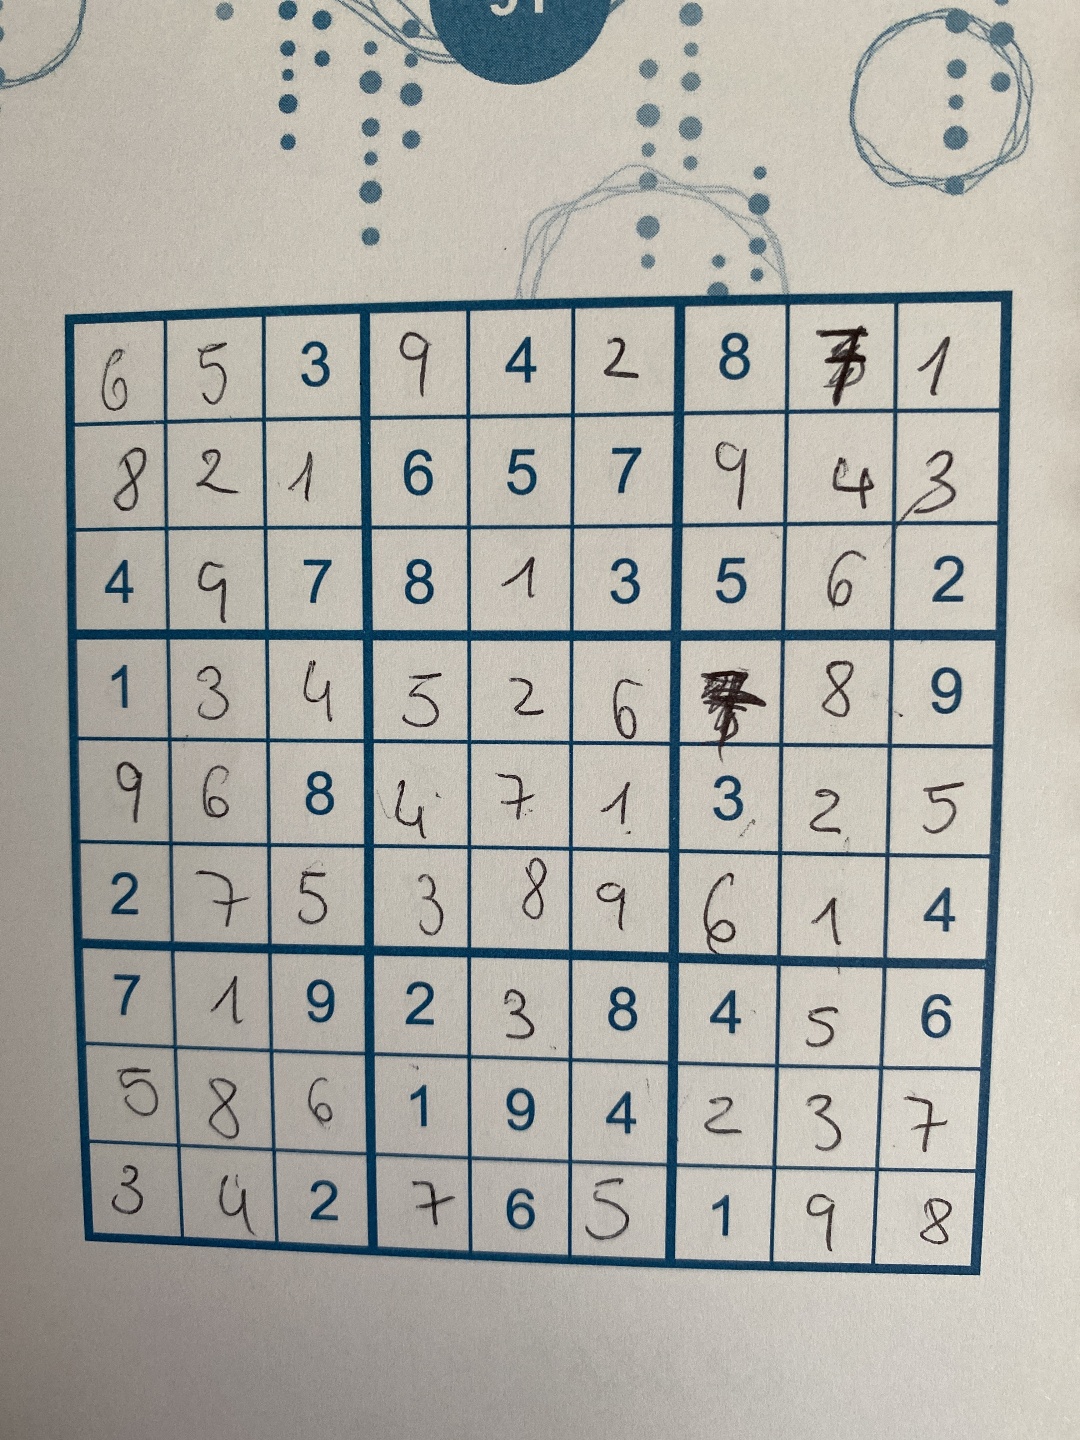 6 5 3 9 4 2 8 7 1
8 2 1 6 5 7 9 4 3
4 9 7 8 1 3 5 6 2
1 3 4 5 2 6 7 8 9
9 6 8 4 7 1 3 2 5
2 7 5 3 8 9 6 1 4
7 1 9 2 3 8 4 5 6
5 8 6 1 9 4 2 3 7
3 4 2 7 6 5 1 9 8